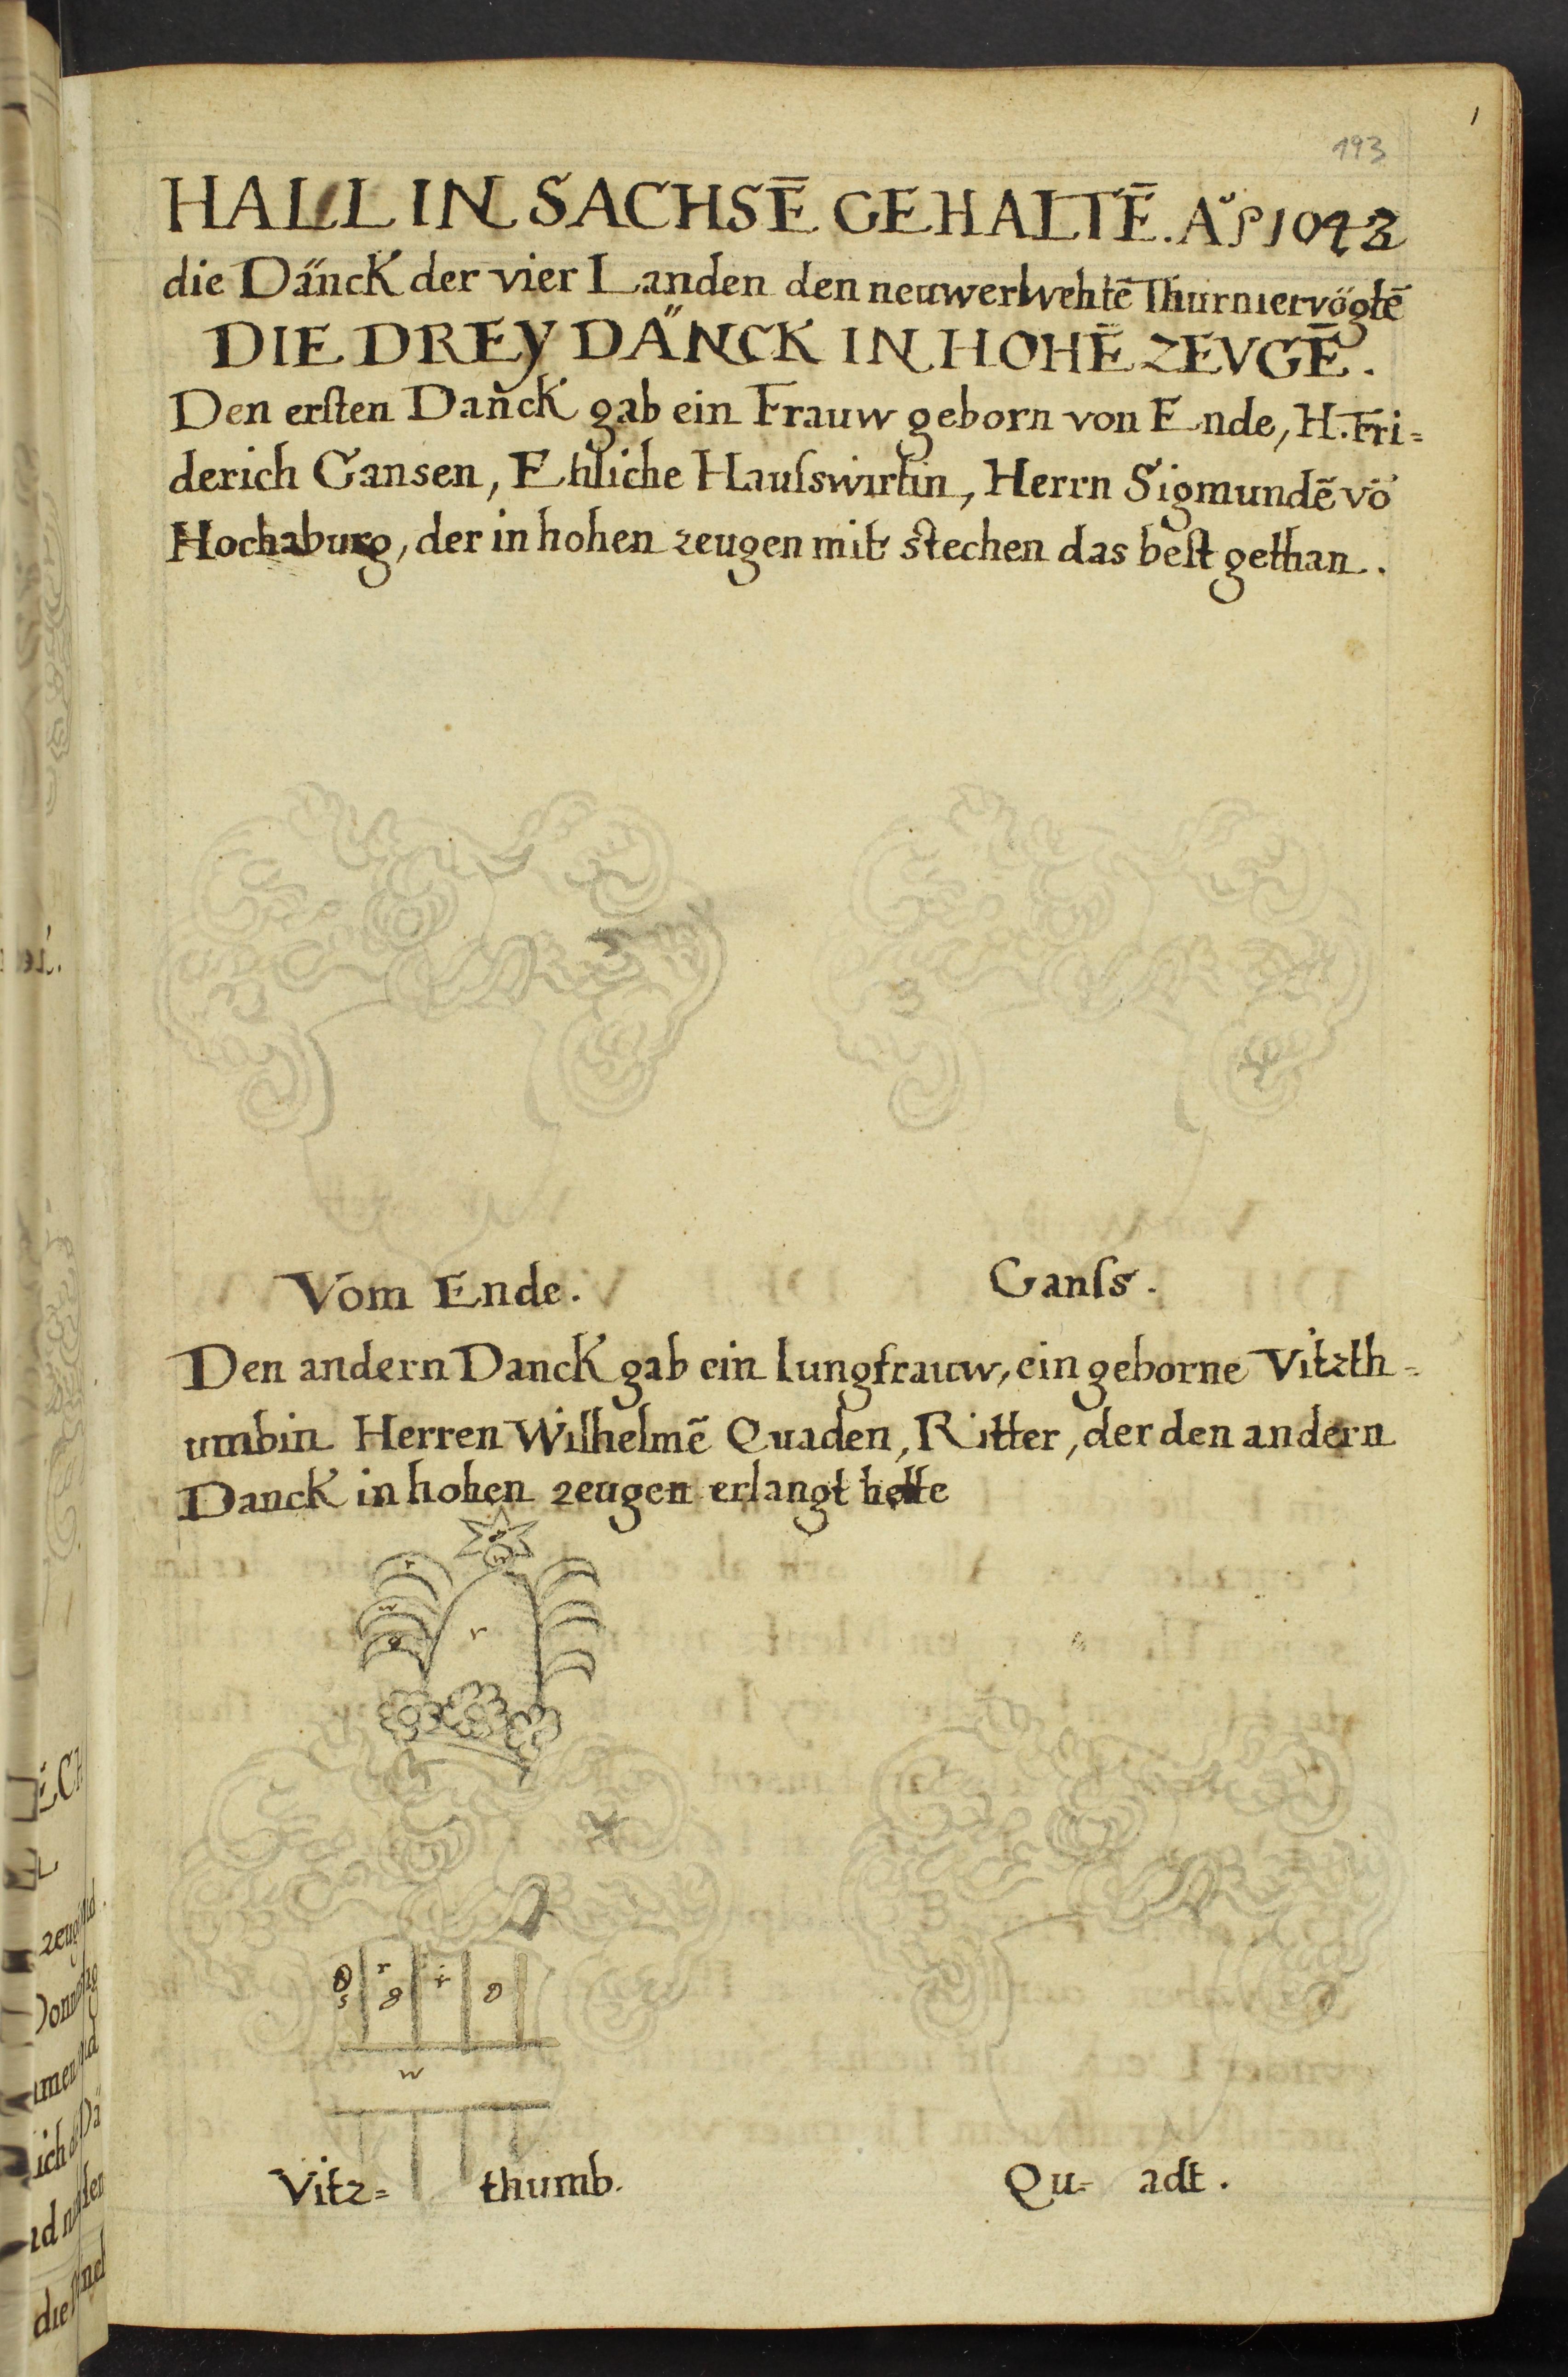 193
HALL IN SACHSĒ GEHALTĒ. Aº 1042
die Dänck der vier Landen den neuwerwehltē Thurniervögtē
DIE DREY DÄNCK IN HOHĒ ZEVGĒ.
Den erſten Dan̄ck gab ein Frauw geborn von Ende, H. Fri=
derich Gansen, Ehliche Hauſswirtin, Herrn Sigmundē vō
Hochaburg, der in hohen zeugen mit stechen das beſt gethan.
Vom Ende. Ganſs.
Den andern Danck gab ein Iungfrauw, ein geborne Vitzth=
umbin Herren Wilhelmē Quaden, Ritter, der den andern
Danck in hohen zeugen erlangt hette
r
w
r
r
g
r
w
Vitz= thumb. Qu= adt.